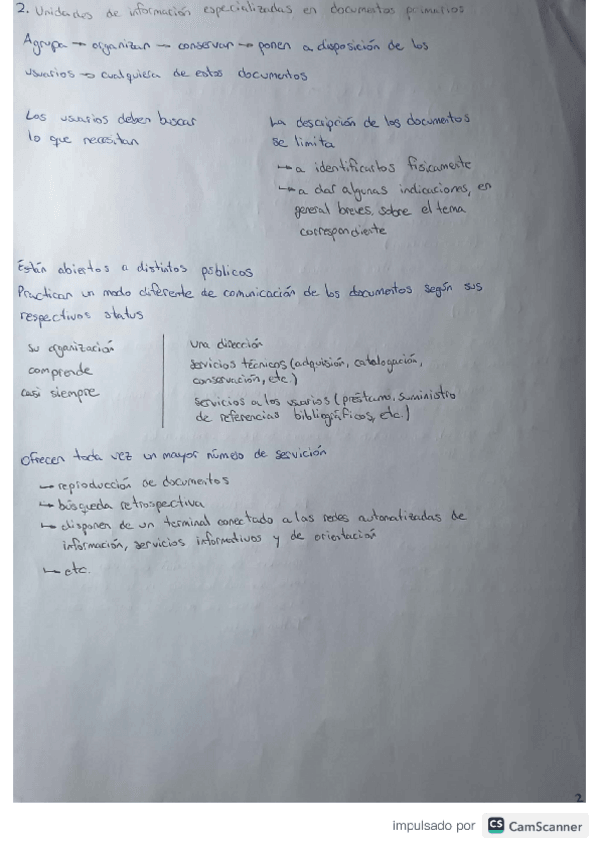 2. Unidades de información especializadas en documentos primarios
Agrupa → organizan → conservar → ponen a disposición de los
usuarios → cualquiera de estos documentos
Los usuarios deben buscar
lo que necesitan
La descripción de los documentos
se limita
→ a identificarlos físicamente
→ a dar algunas indicaciones, en
general breves, sobre el tema
correspondiente
Están abiertos a distintos públicos
Practican un modo diferente de comunicación de los documentos según sus
respectivos status
su organización
comprende
casi siempre
una dirección
servicios técnicos (adquisión, catalogación,
conservación, etc.)
servicios a los usuarios (préstamo, suministro
de referencias bibliográficos, etc.)
Ofrecen toda vez un mayor número de servición
→ reproducción de documentos
→ búsqueda retrospectiva
→ disponen de un terminal conectado a las redes automatizadas de
información, servicios informativos y de orientación
→ etc.
2
impulsado por CS CamScanner